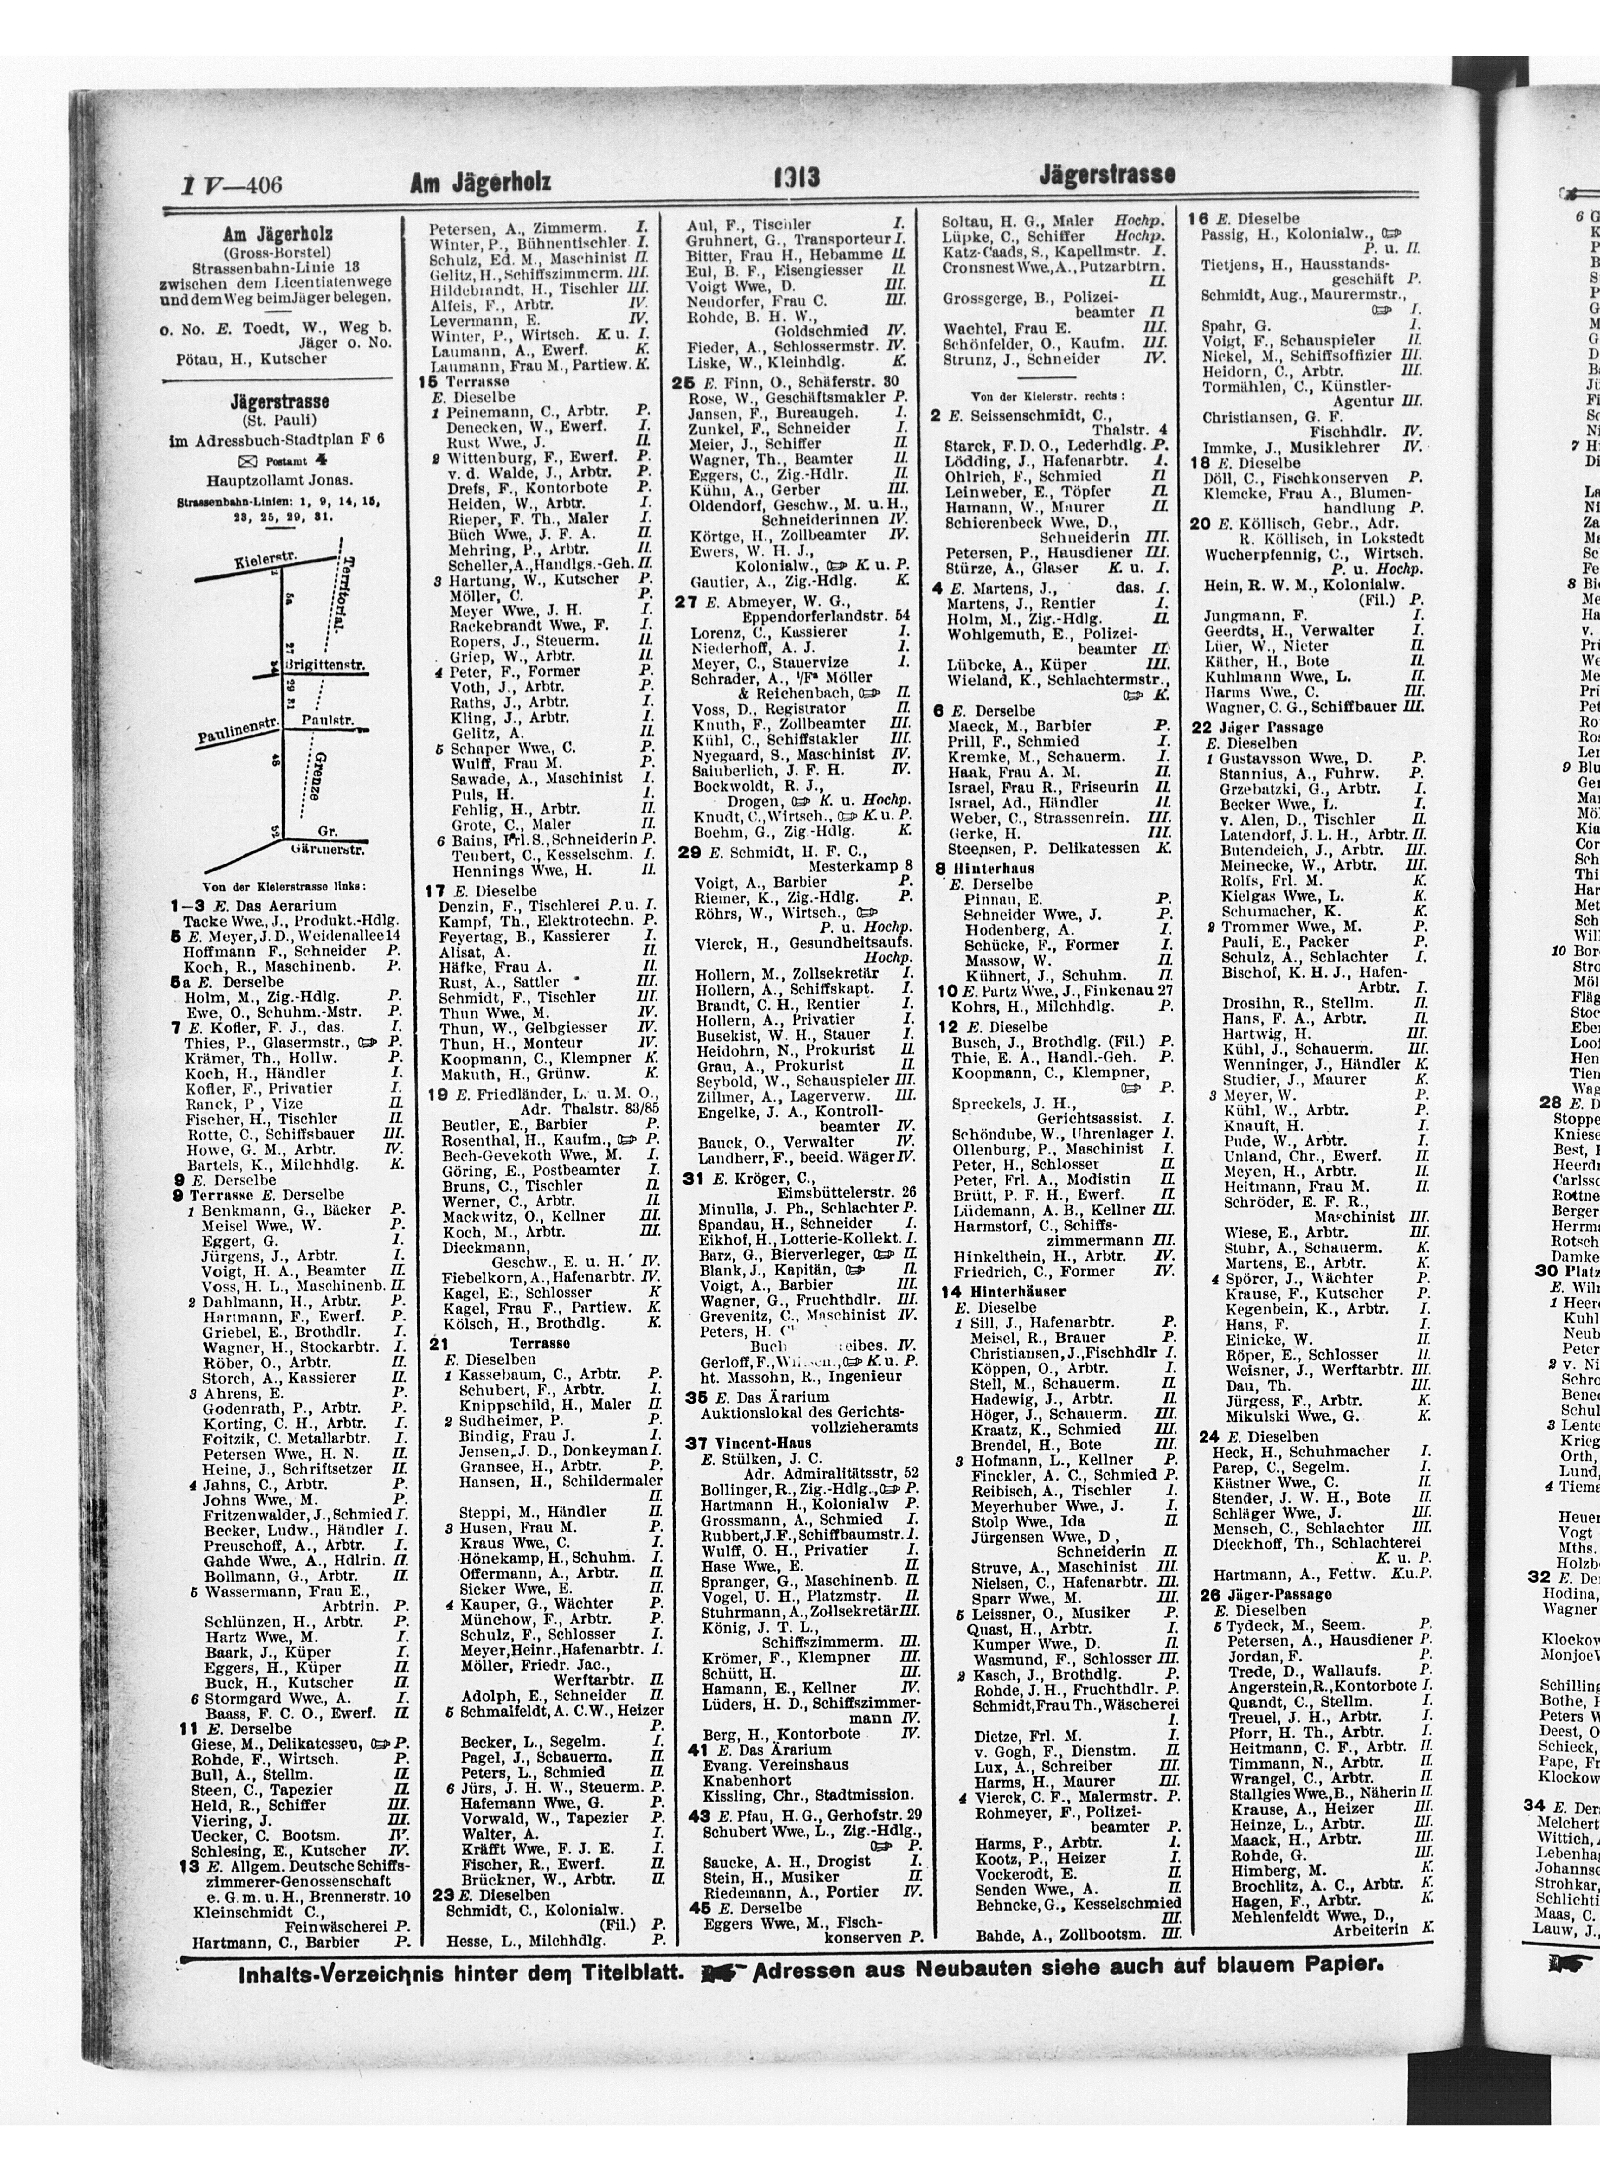 I V—406
Am Jägerholz
1913
Jägerstrasse
Am Jägerholz
(Gross-Borstel)
Strassenbahn-Linie 18
zwischen dem Licentiatenwege
und dem Weg beim Jäger belegen.
o. No. E. Toedt, W., Weg b.
Jäger o. No.
Pötau, H., Kutscher
Jägerstrasse
(St. Pauli)
im Adressbuch-Stadtplan F 6
Postamt 4
Hauptzollamt Jonas.
Strassenbahn-Linien: 1, 9, 14, 15,
23, 25, 29, 31.
Kielerstr.
Territorial-
5a
27
34
Brigittenstr.
29 31
Paulinenstr.
Paulstr.
46
Grenze
52
Gr.
Gärtnerstr.
Von der Kielerstrasse links:
1—3 E. Das Aerarium
Tacke Wwe., J., Produkt.-Hdlg.
5 E. Meyer, J. D., Weidenallee 14
Hoffmann F., Schneider P.
Koch, R., Maschinenb. P.
5a E. Derselbe
Holm, M., Zig.-Hdlg. P.
Ewe, O., Schuhm.-Mstr. P.
7 E. Kofler, F. J., das. I.
Thies, P., Glasermstr., P.
Krämer, Th., Hollw. P.
Koch, H., Händler I.
Kofler, F., Privatier I.
Ranck, P., Vize II.
Fischer, H., Tischler II.
Rotte, C., Schiffsbauer III.
Howe, G. M., Arbtr. IV.
Bartels, K., Milchhdlg. K.
9 E. Derselbe
9 Terrasse E. Derselbe
1 Benkmann, G., Bäcker P.
Meisel Wwe., W. P.
Eggert, G. I.
Jürgens, J., Arbtr. I.
Voigt, H. A., Beamter II.
Voss, H. L., Maschinenb. II.
2 Dahlmann, H., Arbtr. P.
Hartmann, F., Ewerf. P.
Griebel, E., Brothdlr. I.
Wagner, H., Stockarbtr. I.
Röber, O., Arbtr. II.
Storch, A., Kassierer II.
3 Ahrens, E. P.
Godenrath, P., Arbtr. P.
Korting, C. H., Arbtr. I.
Foitzik, C. Metallarbtr. I.
Petersen Wwe., H. N. II.
Heine, J., Schriftsetzer II.
4 Jahns, C., Arbtr. P.
Johns Wwe., M. P.
Fritzenwalder, J., Schmied I.
Becker, Ludw., Händler I.
Preuschoff, A., Arbtr. I.
Gahde Wwe., A., Hdlrin. II.
Bollmann, G., Arbtr. II.
5 Wassermann, Frau E.,
Arbtrin. P.
Schlünzen, H., Arbtr. P.
Hartz Wwe., M. I.
Baark, J., Küper I.
Eggers, H., Küper II.
Buck, H., Kutscher II.
6 Stormgard Wwe., A. I.
Baass, F. C. O., Ewerf. II.
11 E. Derselbe
Giese, M., Delikatessen, P.
Rohde, F., Wirtsch. P.
Bull, A., Stellm. II.
Steen, C., Tapezier II.
Held, R., Schiffer III.
Viering, J. III.
Uecker, C. Bootsm. IV.
Schlesing, E., Kutscher IV.
13 E. Allgem. Deutsche Schiffs-
zimmerer-Genossenschaft
e. G. m. u. H., Brennerstr. 10
Kleinschmidt C.,
Feinwäscherei P.
Hartmann, C., Barbier P.
Petersen, A., Zimmerm. I.
Winter, P., Bühnentischler I.
Schulz, Ed. M., Maschinist II.
Gelitz, H., Schiffszimmerm. III.
Hildebrandt, H., Tischler III.
Alfeis, F., Arbtr. IV.
Levermann, E. IV.
Winter, P., Wirtsch. K. u. I.
Laumann, A., Ewerf. K.
Laumann, Frau M., Partiew. K.
15 Terrasse
E. Dieselbe
1 Peinemann, C., Arbtr. P.
Denecken, W., Ewerf. I.
Rust Wwe., J. II.
2 Wittenburg, F., Ewerf. P.
v. d. Walde, J., Arbtr. P.
Drefs, F., Kontorbote P.
Heiden, W., Arbtr. I.
Rieper, F. Th., Maler I.
Büch Wwe., J. F. A. II.
Mehring, P., Arbtr. II.
Scheller, A., Handlgs.-Geh. II.
3 Hartung, W., Kutscher P.
Möller, C. P.
Meyer Wwe., J. H. I.
Rackebrandt Wwe., F. I.
Ropers, J., Steuerm. II.
Griep, W., Arbtr. II.
4 Peter, F., Former P.
Voth, J., Arbtr. P.
Raths, J., Arbtr. I.
Kling, J., Arbtr. I.
Gelitz, A. II.
5 Schaper Wwe., C. P.
Wulff, Frau M. P.
Sawade, A., Maschinist I.
Puls, H. I.
Fehlig, H., Arbtr. II.
Grote, C., Maler II.
6 Bains, Frl. S., Schneiderin P.
Teubert, C., Kesselschm. I.
Hennings Wwe., H. II.
17 E. Dieselbe
Denzin, F., Tischlerei P. u. I.
Kampf, Th., Elektrotechn. P.
Feyertag, B., Kassierer I.
Alisat, A. II.
Häfke, Frau A. II.
Rust, A., Sattler III.
Schmidt, F., Tischler III.
Thun Wwe., M. IV.
Thun, W., Gelbgiesser IV.
Thun, H., Monteur IV.
Koopmann, C., Klempner K.
Makuth, H., Grünw. K.
19 E. Friedländer, L. u. M. O.,
Adr. Thalstr. 83/85
Beutler, E., Barbier P.
Rosenthal, H., Kaufm., P.
Bech-Gevekoth Wwe., M. I.
Göring, E., Postbeamter I.
Bruns, C., Tischler II.
Werner, C., Arbtr. II.
Mackwitz, O., Kellner III.
Koch, M., Arbtr. III.
Dieckmann,
Geschw., E. u. H. IV.
Fiebelkorn, A., Hafenarbtr. IV.
Kagel, E., Schlosser K
Kagel, Frau F., Partiew. K.
Kölsch, H., Brothdlg. K.
21 Terrasse
E. Dieselben
1 Kassebaum, C., Arbtr. P.
Schubert, F., Arbtr. I.
Knippschild, H., Maler II.
2 Sudheimer, P. P.
Bindig, Frau J. I.
Jensen, J. D., Donkeyman I.
Gransee, H., Arbtr. P.
Hansen, H., Schildermaler
II.
Steppi, M., Händler II.
3 Husen, Frau M. P.
Kraus Wwe., C. I.
Hönekamp, H., Schuhm. I.
Offermann, A., Arbtr. II.
Sicker Wwe., E. II.
4 Kauper, G., Wächter P.
Münchow, F., Arbtr. P.
Schulz, F., Schlosser I.
Meyer, Heinr., Hafenarbtr. I.
Möller, Friedr. Jac.,
Werftarbtr. II.
Adolph, E., Schneider II.
5 Schmalfeldt, A. C. W., Heizer
P.
Becker, L., Segelm. I.
Pagel, J., Schauerm. II.
Peters, L., Schmied II.
6 Jürs, J. H. W., Steuerm. P.
Hafemann Wwe., G. P.
Vorwald, W., Tapezier P.
Walter, A. I.
Kräfft Wwe., F. J. E. I.
Fischer, R., Ewerf. II.
Brückner, W., Arbtr. II.
23 E. Dieselben
Schmidt, C., Kolonialw.
(Fil.) P.
Hesse, L., Milchhdlg. P.
Aul, F., Tischler I.
Gruhnert, G., Transporteur I.
Bitter, Frau H., Hebamme II.
Eul, B. F., Eisengiesser II.
Voigt Wwe., D. III.
Neudorfer, Frau C. III.
Rohde, B. H. W.,
Goldschmied IV.
Fieder, A., Schlossermstr. IV.
Liske, W., Kleinhdlg. K.
25 E. Finn, O., Schäferstr. 30
Rose, W., Geschäftsmakler P.
Jansen, F., Bureaugeh. I.
Zunkel, F., Schneider I.
Meier, J., Schiffer II.
Wagner, Th., Beamter II.
Eggers, C., Zig.-Hdlr. II.
Kühn, A., Gerber III.
Oldendorf, Geschw., M. u. H.,
Schneiderinnen IV.
Körtge, H., Zollbeamter IV.
Ewers, W. H. J.,
Kolonialw., K. u. P.
Gautier, A., Zig.-Hdlg. K.
27 E. Abmeyer, W. G.,
Eppendorferlandstr. 54
Lorenz, C., Kassierer I.
Niederhoff, A. J. I.
Meyer, C., Stauervize I.
Schrader, A., i/Fa Möller
& Reichenbach, II.
Voss, D., Registrator II.
Knuth, F., Zollbeamter III.
Kühl, C., Schiffstakler III.
Nyegaard, S., Maschinist IV.
Saluberlich, J. F. H. IV.
Bockwoldt, R. J.,
Drogen, K. u. Hochp.
Knudt, C., Wirtsch., K. u. P.
Boehm, G., Zig.-Hdlg. K.
29 E. Schmidt, H. F. C.,
Mesterkamp 8
Voigt, A., Barbier P.
Riemer, K., Zig.-Hdlg. P.
Röhrs, W., Wirtsch.,
P. u. Hochp.
Vierck, H., Gesundheitsaufs.
Hochp.
Hollern, M., Zollsekretär I.
Hollern, A., Schiffskapt. I.
Brandt, C. H., Rentier I.
Hollern, A., Privatier I.
Busekist, W. H., Stauer I.
Heidohrn, N., Prokurist II.
Grau, A., Prokurist II.
Seybold, W., Schauspieler III.
Zillmer, A., Lagerverw. III.
Engelke, J. A., Kontroll-
beamter IV.
Bauck, O., Verwalter IV.
Landherr, F., beeid. Wäger IV.
31 E. Kröger, C.,
Eimsbüttelerstr. 26
Minulla, J. Ph., Schlachter P.
Spandau, H., Schneider I.
Eikhof, H., Lotterie-Kollekt. I.
Barz, G., Bierverleger, II.
Blank, J., Kapitän, II.
Voigt, A., Barbier III.
Wagner, G., Fruchthdlr. III.
Grevenitz, C., Maschinist IV.
Peters, H.
Buch eibes. IV.
Gerloff, F., K. u. P.
ht. Massohn, R., Ingenieur
35 E. Das Ärarium
Auktionslokal des Gerichts-
vollzieheramts
37 Vincent-Haus
E. Stülken, J. C.
Adr. Admiralitätsstr, 52
Bollinger, R., Zig.-Hdlg., P.
Hartmann H., Kolonialw P.
Grossmann, A., Schmied I.
Rubbert, J. F., Schiffbaumstr. I.
Wulff, O. H., Privatier I.
Hase Wwe., E. II.
Spranger, G., Maschinenb. II.
Vogel, U. H., Platzmstr. II.
Stuhrmann, A., Zollsekretär III.
König, J. T. L.,
Schiffszimmerm. III.
Krömer, F., Klempner III.
Schütt, H. III.
Hamann, E., Kellner IV.
Lüders, H. D., Schiffszimmer-
mann IV.
Berg, H., Kontorbote IV.
41 E. Das Ärarium
Evang. Vereinshaus
Knabenhort
Kissling, Chr., Stadtmission.
43 E. Pfau, H. G., Gerhofstr. 29
Schubert Wwe., L., Zig.-Hdlg.,
P.
Saucke, A. H., Drogist I.
Stein, H., Musiker II.
Riedemann, A., Portier IV.
45 E. Derselbe
Eggers Wwe., M., Fisch-
konserven P.
Soltau, H. G., Maler Hochp.
Lüpke, C., Schiffer Hochp.
Katz-Caads, S., Kapellmstr. I.
Cronsnest Wwe., A., Putzarbtrn.
II.
Grossgerge, B., Polizei-
beamter II
Wachtel, Frau E. III.
Schönfelder, O., Kaufm. III.
Strunz, J., Schneider IV.
Von der Kielerstr. rechts:
2 E. Seissenschmidt, C.,
Thalstr. 4
Starck, F. D. O., Lederhdlg. P.
Lödding, J., Hafenarbtr. I.
Ohlrich, F., Schmied II
Leinweber, E., Töpfer II.
Hamann, W., Maurer II.
Schierenbeck Wwe., D.,
Schneiderin III.
Petersen, P., Hausdiener III.
Stürze, A., Glaser K. u. I.
4 E. Martens, J., das. I.
Martens, J., Rentier I.
Holm, M., Zig.-Hdlg. II.
Wohlgemuth, E., Polizei-
beamter II.
Lübcke, A., Küper III.
Wieland, K., Schlachtermstr.,
K.
6 E. Derselbe
Maeck, M., Barbier P.
Prill, F., Schmied I.
Kremke, M., Schauerm. I.
Haak, Frau A. M. II.
Israel, Frau R., Friseurin II.
Israel, Ad., Händler II.
Weber, C., Strassenrein. III.
Gerke, H. III.
Steensen, P. Delikatessen K.
8 Hinterhaus
E. Derselbe
Pinnau, E. P.
Schneider Wwe., J. P.
Hodenberg, A. I.
Schücke, F., Former I.
Massow, W. II.
Kühnert, J., Schuhm. II.
10 E. Partz Wwe., J., Finkenau 27
Kohrs, H., Milchhdlg. P.
12 E. Dieselbe
Busch, J., Brothdlg. (Fil.) P.
Thie, E. A., Handl.-Geh. P.
Koopmann, C., Klempner,
P.
Spreckels, J. H.,
Gerichtsassist. I.
Schöndube, W., Uhrenlager I.
Ollenburg, P., Maschinist I.
Peter, H., Schlosser II.
Peter, Frl. A., Modistin II.
Brütt, P. F. H., Ewerf. II.
Lüdemann, A. B., Kellner III.
Harmstorf, C., Schiffs-
zimmermann III.
Hinkelthein, H., Arbtr. IV.
Friedrich, C., Former IV.
14 Hinterhäuser
E. Dieselbe
1 Sill, J., Hafenarbtr. P.
Meisel, R., Brauer P.
Christiansen, J., Fischhdlr I.
Köppen, O., Arbtr. I.
Stell, M., Schauerm. II.
Hadewig, J., Arbtr. II.
Höger, J., Schauerm. III.
Kraatz, K., Schmied III.
Brendel, H., Bote III.
3 Hofmann, L., Kellner P.
Finckler, A. C., Schmied P.
Reibisch, A., Tischler I.
Meyerhuber Wwe., J. I.
Stolp Wwe., Ida II.
Jürgensen Wwe., D.,
Schneiderin II.
Struve, A., Maschinist III.
Nielsen, C., Hafenarbtr. III.
Sparr Wwe., M. III.
5 Leissner, O., Musiker P.
Quast, H., Arbtr. I.
Kumper Wwe., D. II.
Wasmund, F., Schlosser III.
2 Kasch, J., Brothdlg. P.
Rohde, J. H., Fruchthdlr. P.
Schmidt, Frau Th., Wäscherei
I.
Dietze, Frl. M. I.
v. Gogh, F., Dienstm. II.
Lux, A., Schreiber III.
Harms, H., Maurer III.
4 Vierck, C. F., Malermstr. P.
Rohmeyer, F., Polizei-
beamter P.
Harms, P., Arbtr. I.
Kootz, P., Heizer I.
Vockerodt, E. II.
Senden Wwe., A. II.
Behncke, G., Kesselschmied
III.
Bahde, A., Zollbootsm. III.
16 E. Dieselbe
Passig, H., Kolonialw.,
P. u. II.
Tietjens, H., Hausstands-
geschäft P.
Schmidt, Aug., Maurermstr.,
I.
Spahr, G. I.
Voigt, F., Schauspieler II.
Nickel, M., Schiffsoffizier III.
Heidorn, C., Arbtr. III.
Tormählen, C., Künstler-
Agentur III.
Christiansen, G. F.
Fischhdlr. IV.
Immke, J., Musiklehrer IV.
18 E. Dieselbe
Döll, C., Fischkonserven P.
Klemcke, Frau A., Blumen-
handlung P.
20 E. Köllisch, Gebr., Adr.
R. Köllisch, in Lokstedt
Wucherpfennig, C., Wirtsch.
P. u. Hochp.
Hein, R. W. M., Kolonialw.
(Fil.) P.
Jungmann, F. I.
Geerdts, H., Verwalter I.
Lüer, W., Nieter II.
Käther, H., Bote II.
Kuhlmann Wwe., L. II.
Harms Wwe., C. III.
Wagner, C. G., Schiffbauer III.
22 Jäger Passage
E. Dieselben
1 Gustavsson Wwe., D. P.
Stannius, A., Fuhrw. P.
Grzebatzki, G., Arbtr. I.
Becker Wwe., L. I.
v. Alen, D., Tischler II.
Latendorf, J. L. H., Arbtr. II.
Butendeich, J., Arbtr. III.
Meinecke, W., Arbtr. III.
Rolfs, Frl. M. K.
Kielgas Wwe., L. K.
Schumacher, K. K.
2 Trommer Wwe., M. P.
Pauli, E., Packer P.
Schulz, A., Schlachter I.
Bischof, K. H. J., Hafen-
Arbtr. I.
Drosihn, R., Stellm. II.
Hans, F. A., Arbtr. II.
Hartwig, H. III.
Kühl, J., Schauerm. III.
Wenninger, J., Händler K.
Studier, J., Maurer K.
3 Meyer, W. P.
Kühl, W., Arbtr. P.
Knauft, H. I.
Pude, W., Arbtr. I.
Unland, Chr., Ewerf. II.
Meyen, H., Arbtr. II.
Heitmann, Frau M. II.
Schröder, E. F. R.,
Maschinist III.
Wiese, E., Arbtr. III.
Stuhr, A., Schauerm. K.
Martens, E., Arbtr. K.
4 Spörer, J., Wächter P.
Krause, F., Kutscher P.
Kegenbein, K., Arbtr. I.
Hans, F. I.
Einicke, W. II.
Röper, E., Schlosser II.
Weisner, J., Werftarbtr. III.
Dau, Th. III.
Jürgess, F., Arbtr. K.
Mikulski Wwe., G. K.
24 E. Dieselben
Heck, H., Schuhmacher I.
Parep, C., Segelm. I.
Kästner Wwe., C. II.
Stender, J. W. H., Bote II.
Schläger Wwe., J. III.
Mensch, C., Schlachter III.
Dieckhoff, Th., Schlachterei
K. u. P.
Hartmann, A., Fettw. K.u.P.
26 Jäger-Passage
E. Dieselben
5 Tydeck, M., Seem. P.
Petersen, A., Hausdiener P.
Jordan, F. P.
Trede, D., Wallaufs. P.
Angerstein, R., Kontorbote I.
Quandt, C., Stellm. I.
Treuel, J. H., Arbtr. I.
Pforr, H. Th., Arbtr. I.
Heitmann, C. F., Arbtr. II.
Timmann, N., Arbtr. II.
Wrangel, C., Arbtr. II.
Stallgies Wwe., B., Näherin II.
Krause, A., Heizer III.
Heinze, L., Arbtr. III.
Maack, H., Arbtr. III.
Rohde, G. III.
Himberg, M. K.
Brochlitz, A. C., Arbtr. K.
Hagen, F., Arbtr. K.
Mehlenfeldt Wwe., D.,
Arbeiterin K.
Inhalts-Verzeichnis hinter dem Titelblatt. Adressen aus Neubauten siehe auch auf blauem Papier.